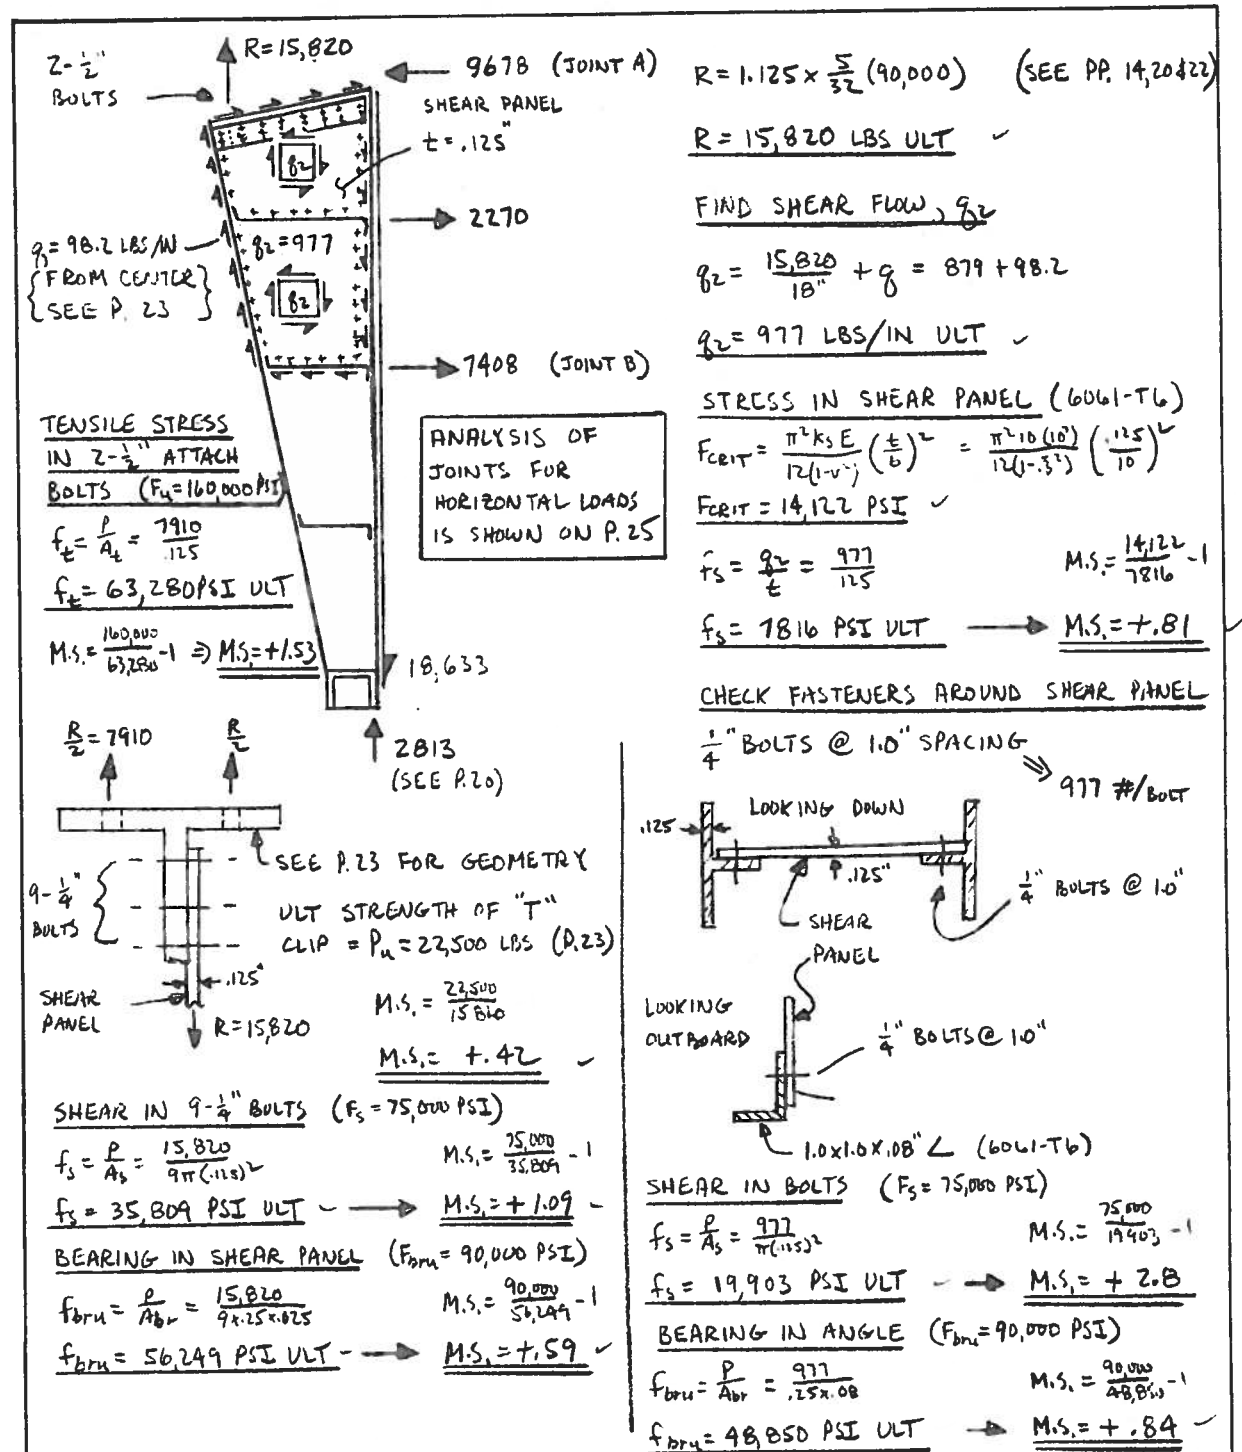 2-1/2"
BOLTS
R=15,820
9678 (JOINT A)
SHEAR PANEL
t=.125"
q2
2270
q2=977
q=98.2 LBS/IN
{FROM CENTER}
{SEE P. 23}
q2
7408 (JOINT B)
TENSILE STRESS
IN 2-1/2" ATTACH
BOLTS (Fu=160,000 PSI)
ft = P/At = 7910/.125
ft = 63,280 PSI ULT
M.S. = 160,000/63,280 -1 ⇒ M.S.=+1.53
ANALYSIS OF
JOINTS FOR
HORIZONTAL LOADS
IS SHOWN ON P.25
18,633
2813
(SEE P.20)
R/2 = 7910
R/2
SEE P.23 FOR GEOMETRY
9-1/4"
BOLTS
ULT STRENGTH OF "T"
CLIP = Pu = 22,500 LBS (P.23)
.125"
SHEAR
PANEL
R=15,820
M.S. = 22,500/15820
M.S. = +.42 ✓
SHEAR IN 9-1/4" BOLTS (Fs = 75,000 PSI)
fs = P/As = 15,820/9π(.125)²
M.S. = 75,000/35,809 -1
fs = 35,809 PSI ULT
M.S. = +1.09
BEARING IN SHEAR PANEL (Fbru = 90,000 PSI)
fbru = P/Abr = 15,820/9x.25x.025
M.S. = 90,000/56,249 -1
fbru = 56,249 PSI ULT
M.S. = +.59 ✓
R = 1.125 x 5/32 (90,000) (SEE PP. 14,20&22)
R = 15,820 LBS ULT ✓
FIND SHEAR FLOW, q2
q2 = 15,820/18" + q = 879 + 98.2
q2 = 977 LBS/IN ULT ✓
STRESS IN SHEAR PANEL (6061-T6)
FCRIT = π² ks E/12(1-υ²) (t/b)² = π² 10 (10⁷)/12(1-.3²) (.125/10)²
FCRIT = 14,122 PSI ✓
fs = q2/t = 977/.125
M.S. = 14,122/7816 -1
fs = 7816 PSI ULT
M.S. = +.81 ✓
CHECK FASTENERS AROUND SHEAR PANEL
1/4" BOLTS @ 1.0" SPACING
977 #/BOLT
LOOKING DOWN
.125
.125"
1/4" BOLTS @ 1.0"
SHEAR
PANEL
LOOKING
OUTBOARD
1/4" BOLTS @ 1.0"
1.0x1.0x.08" ∠ (6061-T6)
SHEAR IN BOLTS (Fs = 75,000 PSI)
fs = P/As = 977/π(.125)²
M.S. = 75,000/19903 -1
fs = 19,903 PSI ULT
M.S. = +2.8
BEARING IN ANGLE (Fbru = 90,000 PSI)
fbru = P/Abr = 977/.25x.08
M.S. = 90,000/48,850 -1
fbru = 48,850 PSI ULT
M.S. = +.84 ✓